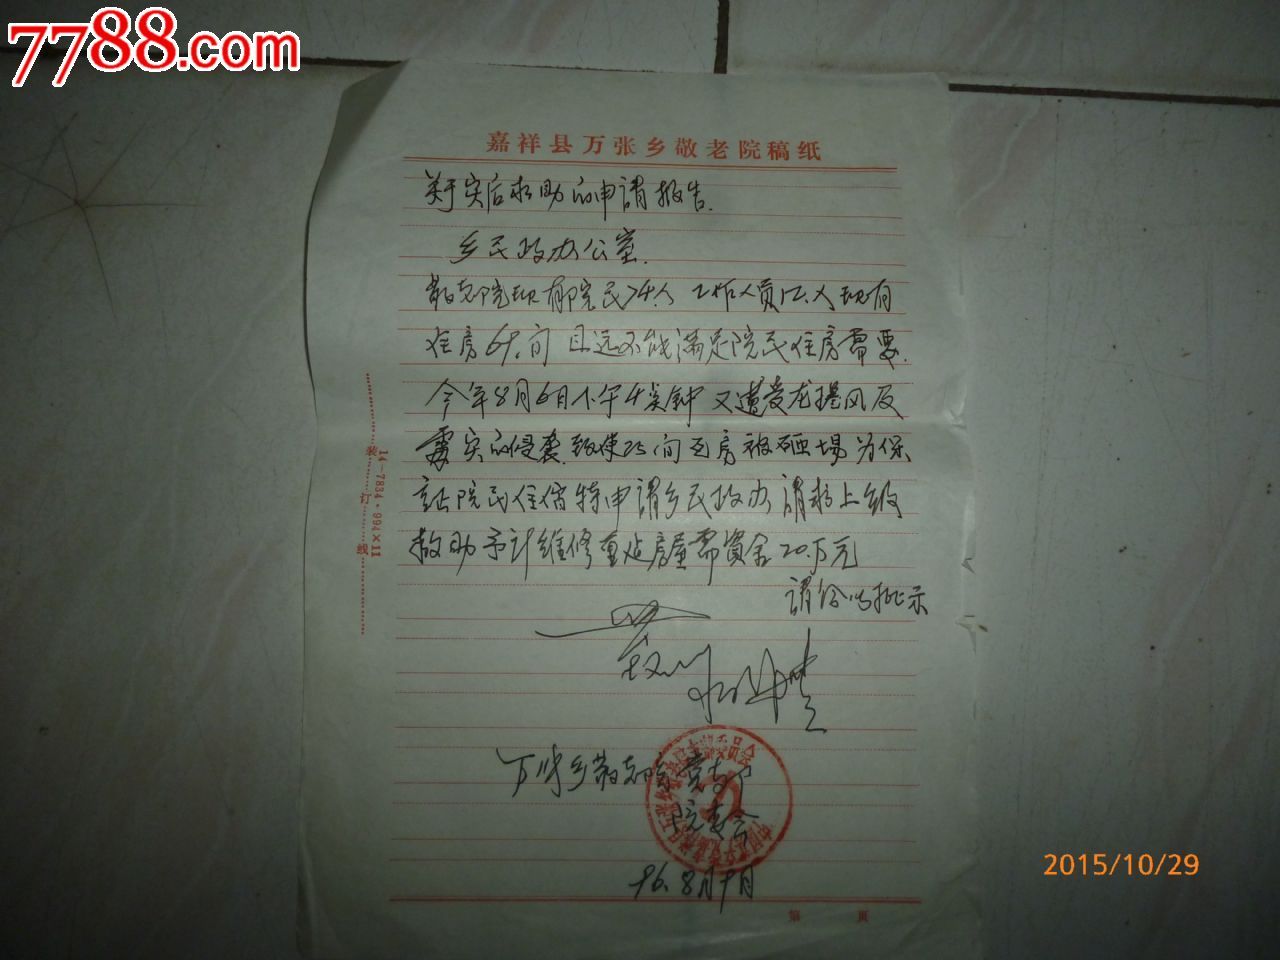 7788.com
嘉祥县万张乡敬老院稿纸
关于灾后求助的申请报告.
乡民政办公室.
敬老院现有院民74人 工作人员12人现有
住房69间 且远不能满足院民住房需要.
今年8月6日下午4点钟 又遭受龙捲风及
雹灾的侵袭 致使25间瓦房被砸塌 为保
证院民住宿特申请乡民政办 请求上级
救助 予计维修重建房屋需资金20万元
请给以批示
万张乡敬老院党支部
院委会
96.8月9日
14-7834·994×11
装 订 线
第 页
2015/10/29